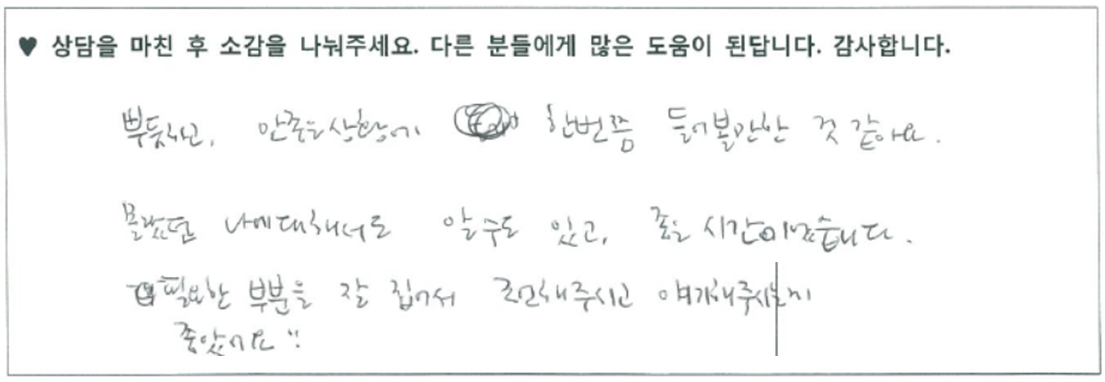 ♥ 상담을 마친 후 소감을 나눠주세요. 다른 분들에게 많은 도움이 된답니다. 감사합니다.
뿌듯하고, 안좋은상황에 한번쯤 들어볼만한 것 같아요.
몰랐던 나에대해서도 알 수도 있고, 좋은 시간이었습니다.
필요한 부분을 잘 집어서 조언해주시고 얘기해주시는게
좋았어요